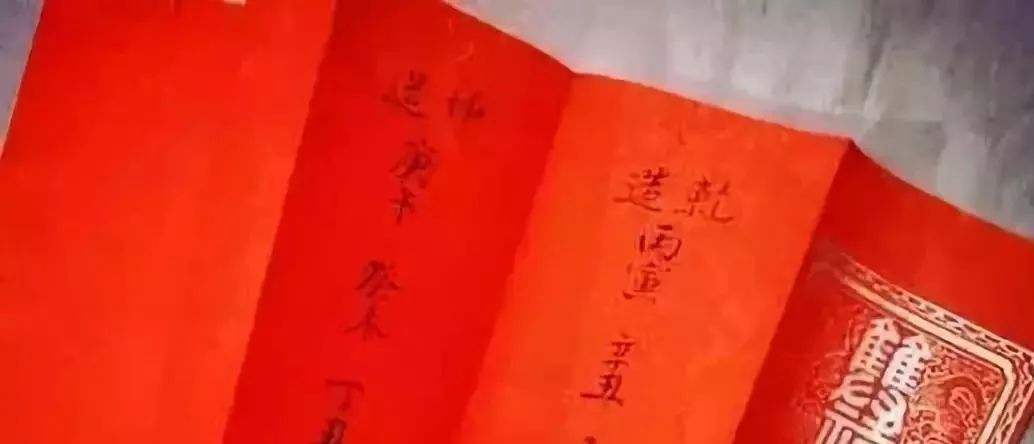 乾造 丙寅 辛丑
坤造 庚午 癸未 丁丑